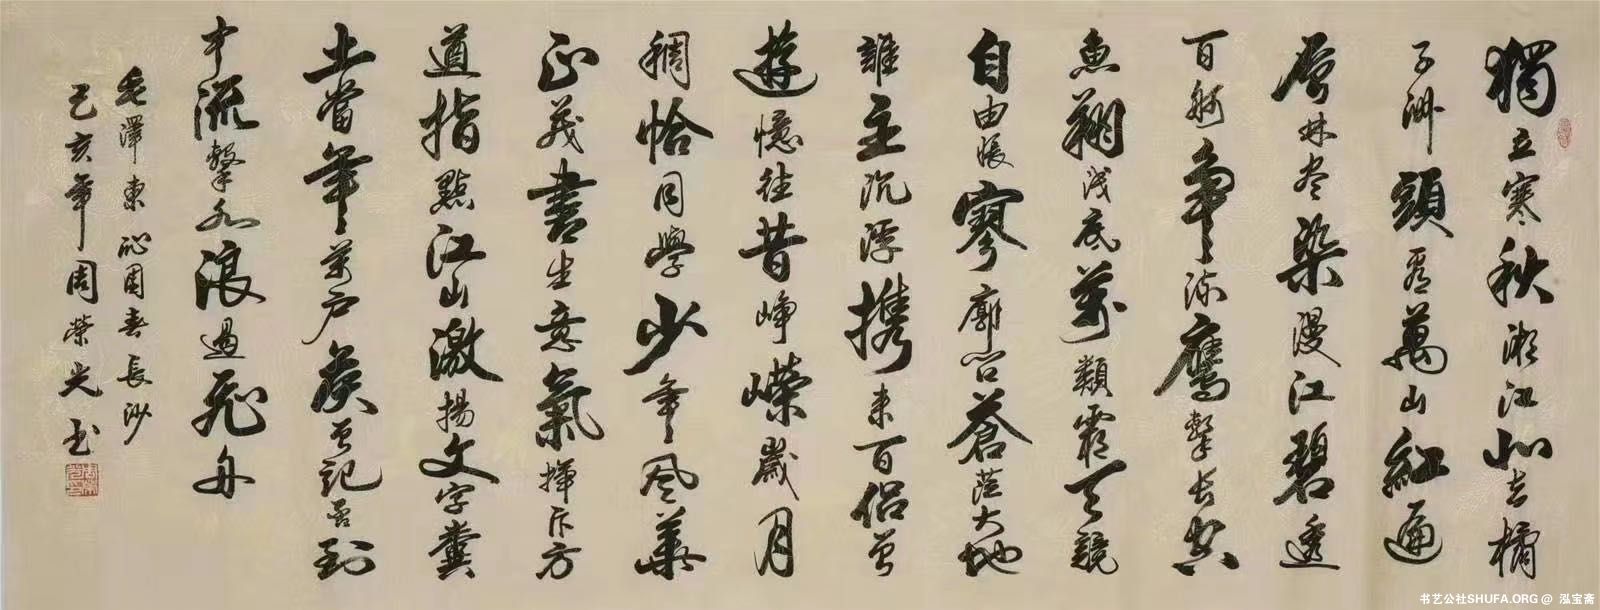 獨立寒秋湘江北去橘
子洲頭看萬山紅遍
層林尽染漫江碧透
百舸爭流鷹擊長空
魚翔淺底萬類霜天競
自由悵寥廓問蒼茫大地
誰主沉浮携來百侶曾
遊憶往昔崢嶸歲月
稠恰同學少年風華
正茂書生意氣揮斥方
遒指點江山激揚文字糞
土當年萬户矦曾記否到
中流擊水浪遏飛舟
毛澤東沁園春長沙
己亥年周榮光書
书艺公社SHUFA.ORG @ 泓宝斋